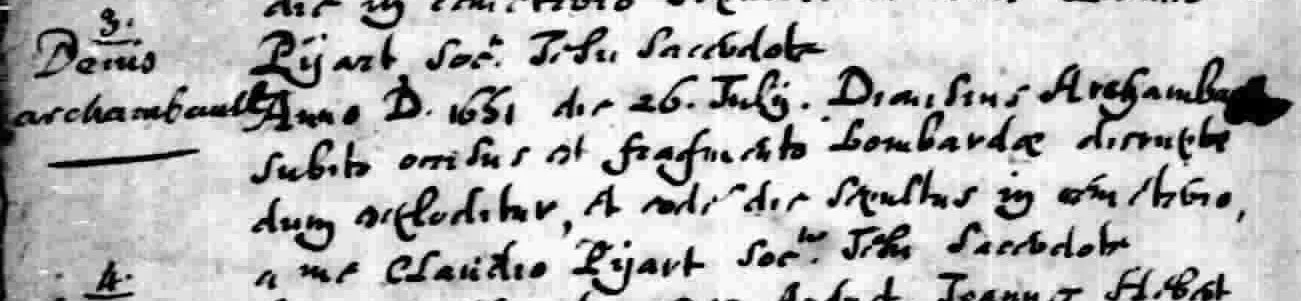 die in cœmeterio
3.
Denis
archambault
Pijart Soc. Jesu Sacerdote
Anno D. 1651 die 26. Julij. Dionisius Archambau
subito occisus est fragmento bombardæ disruptæ
dum exploditur, et eodē die sepultus in cœmeterio,
a me Claudio Pijart Soctis. Jesu Sacerdote
4.
Joannes